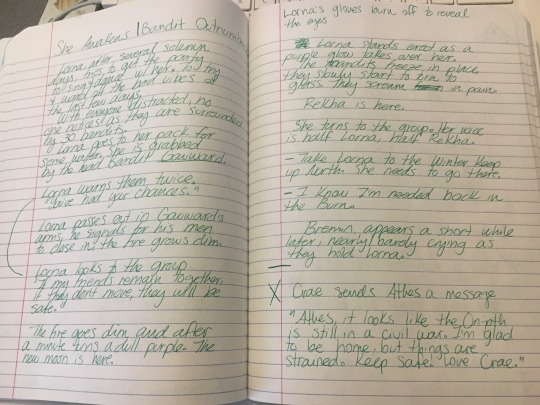 She Awakens | Bandit Outnumbered
Lorna, after several solemn
days, tries to get the party
to sing & dance w/ her. to try
& ward off the bad vibes of
the last few days.
With everyone distracted, no
one notices as they are surrounded
by 30 bandits.
Lorna goes to her pack for
some water, she is grabbed
by the lead Bandit Gauward.
Lorna warns them twice.
"I've had your chances."
Lorna passes out in Gauward's
arms, he signals for his men
to close in, the fire grows dim.
Lorna looks to the group
"If my friends remain together,
if they don't move, they will be
safe."
The fire goes dim, and after
a minute turns a dull purple. The
new moon is here.
Lorna's gloves burn off to reveal
the eyes
Lorna stands erect as a
purple glow takes over her.
The bandits freeze in place,
they slowly start to turn to
glass they scream in pain.
Rekha is here.
She turns to the group. Her voice
is half Lorna, half Rekha.
- Take Lorna to the Winter Keep
up North. She needs to go there.
- I know I'm needed back in
the Burn.
appears a short while
later, nearly barely crying as
they hold Lorna.
X Crae sends Athes a message
"Athes, it looks like the
is still in a civil war. I'm glad
to be home, but things are
strained. Keep safe. Love Crae."